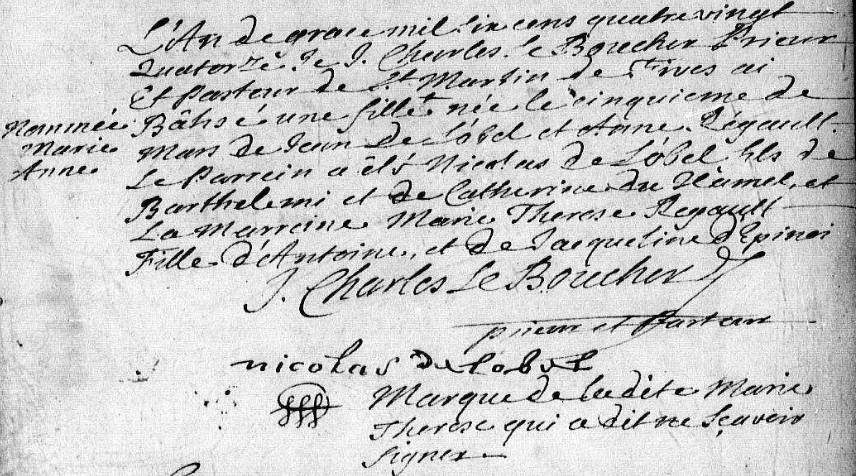 L'An de grace mil six cens quatre vingt
Quatorze. Je J. Charles Le Boucher Prieur
Et Pasteur de St. Martin de Yves ai
Bâtisé une fille née le cinquieme de
nommée
Marie
Anne
Mars de Jean de Lobel et Anne Régault.
Le Parrein a été Nicolas de Lobel fils de
Barthelemi et de Catherine du Hamel, et
La Marreine Marie Therese Regault
Fille d'Antoine, et de Jacqueline d'Epinoi
J. Charles Le Boucher
prieur et Pasteur
nicolas de lobel
Marque de ladite Marie
Therese qui a dit ne sçavoir
signer